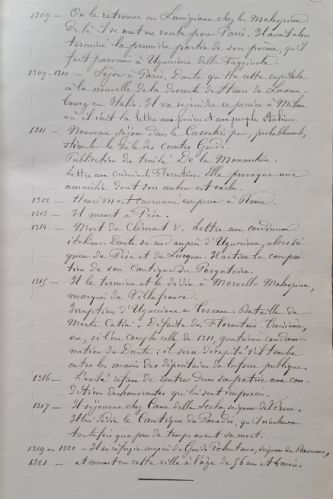 1309 - On le retrouve en Lunigiane chez les Malaspina.
De là il se met en route pour Paris. Il avait alors
terminé la première partie de son poème, qu'il
fait parvenir à Uguccione della Faggiuola.
1309-1310 - Séjour à Paris. Dante quitte cette capitale
à la nouvelle de la descente de Henri de Luxem-
bourg en Italie. Il va rejoindre ce prince à Milan
ou il écrit la lettre aux princes et aux peuples Italiens.
1311 - Nouveau séjour dans le Casentin pr, probablement,
stimuler le zèle des comtes Guidi.
Publication du traité: De la Monarchie.
Lettre aux criminels Florentins. Elle provoque une
amnistie dont son auteur est exclu.
1312 - Henri VII est couronné empereur à Rome.
1313 - Il meurt à Pise.
1314 - Mort de Clément V. Lettre aux cardinaux
italiens. Dante se rend auprès d'Uguccione, alors sei-
gneur de Pise et de Lucques. Il active la composi-
tion de son Cantique du Purgatoire.
1315 - Il le termine et le dédie à Morcello Malaspina,
marquis de Villafranca.
Irruption d'Uguccione en Toscane. Bataille de
Monte Catini. Défaite des Florentins. Troisième,
ou, si l'on compte celle de 1311, quatrième condam-
nation de Dante; il sera décapité s'il tombe
entre les mains des dépositaires de la force publique.
1316 - Dante refuse de rentrer dans sa patrie aux con-
ditions déshonorantes qui lui sont imposées.
1317 - Il séjourne chez Cane della Scala seigneur de Vérone.
Il lui dédie le Cantique du Paradis, qu'il n'acheva
toutefois que peu de temps avant sa mort.
1319 ou 1320 - Il se réfugie auprès de Guido Polentano, seigneur de Ravenne,
1321 - et meurt en cette ville à l'âge de 56 ans et 4 mois.